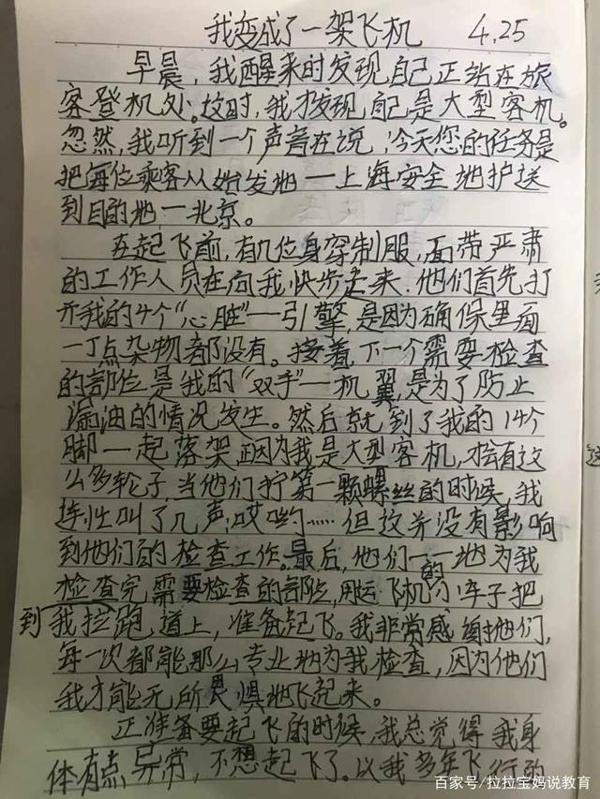 我变成了一架飞机 4.25
早晨，我醒来时发现自己正站在旅
客登机处。这时，我发现自己是大型客机。
忽然，我听到一个声音在说，今天您的任务是
把每位乘客从始发地一上海安全地护送
到目的地一北京。
在起飞前，有几位身穿制服，面带严肃
的工作人员在向我快步走来，他们首先打
开我的4个“心脏”一引擎，是因为确保里面
一丁点杂物都没有。接着，下一个需要检查
的部位是我的“双手”一机翼，是为了防止
漏油的情况发生。然后就到了我的14个
脚一起落架，因为我是大型客机，才会有这
么多轮子，当他们拧第一颗螺丝的时候，我
连忙叫了几声：哎哟……但这并没有影响
到他们的检查工作。最后，他们一一地为我
检查完需要检查的部位，用运飞机的小车子把
到我拉跑道上，准备起飞。我非常感谢他们，
每一次都能那么专业地为我检查，因为他们
我才能无所畏惧地飞起来。
正准备要起飞的时候，我总觉得我身
体有点异常，不想起飞了。以我多年飞行的
百家号/拉拉宝妈说教育